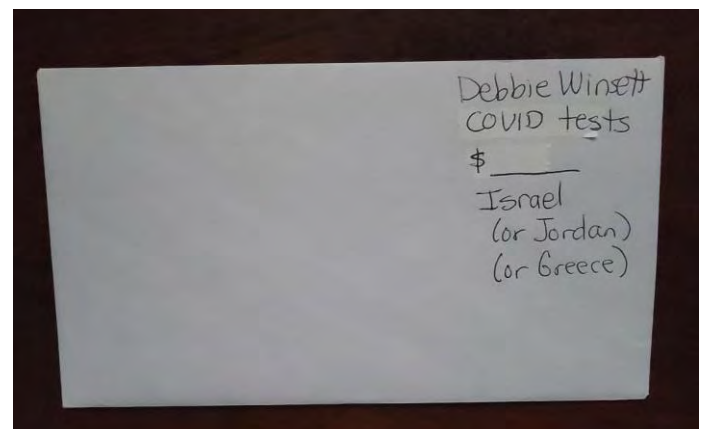 Debbie Winsett
COVID tests
$______
Israel
(or Jordan)
(or Greece)